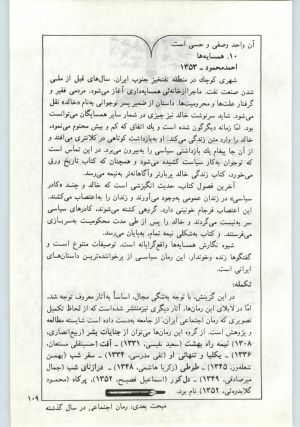 آن واحد وصفی و حسی است.
۱۰. همسایه‌ها
احمدمحمود ـ ۱۳۵۳
شهری کوچك در منطقه نفتخیز جنوب ایران. سال‌های قبل از ملی
شدن صنعت نفت. ماجرا از خانه‌ئی همسایه‌داری آغاز می‌شود. مردمی فقیر و
گرفتار علت‌ها و محرومیت‌ها. داستان از ضمیر پسر نوجوانی به‌نام «خالد» نقل
می‌شود. شاید سرنوشت خالد نیز چیزی در شمار سایر همسایگان می‌توانست
بود. امّا زمانه دیگرگون شده است و یك اتفاق که کم و بیش محتوم می‌نمود،
خالد را وارد متن زندگی می‌کند. او به‌بازداشت کوتاهی در کلانتری می‌افتد و
از آن جا پیغام یك بازداشتی سیاسی را به‌بیرون می‌برد. در این تماس است
که نوجوان به‌کار سیاست کشیده می‌شود و همچنان که کتاب تاریخ ورق
می‌خورد، کتاب زندگی خالد پربارتر و آگاهانه‌تر به‌نیمه می‌رسد.
آخرین فصول کتاب، حدیث انگیزشی است که خالد و چند «کادر
سیاسی» در زندان عمومی به‌وجود می‌آورند و زندان را به‌اعتصاب می‌کشند.
این اعتصاب فرجام خونینی دارد. گروهی کشته می‌شوند، کادرهای سیاسی
سر به‌نیست می‌گردند و خالد را پس از طی مدت محکومیت به‌سربازی
می‌فرستند. و کتاب به‌شکلی نیمه تمام، به‌پایان می‌رسد.
شیوه نگارش همسایه‌ها واقع‌گرایانه است. توصیفات متنوع است و
گفتگوها زنده و خوندار. این رمان سیاسی از پرخواننده‌ترین داستان‌های
ایرانی است.
تکمله:
در این گزینش، با توجه به‌تنگی مجال، اساساً به‌آثار معروف توجه شد.
امّا در لابلای این رمان‌ها، آثار دیگری نیز منتشر شده‌است که از لحاظ تکمیل
تصویری که رمان اجتماعی ایران، از جامعه به‌دست داده است شایسته مطالعه
و پژوهش است. از گروه این رمان‌ها می‌توان از جنایات بشر (ربیع‌انصاری،
۱۳۰۸) نیمه راه بهشت (سعید نفیسی، ۱۳۳۱) ـ آفت (حسینقلی مستعان،
۱۳۳۶) ـ یکلیا و تنهائی او (تقی مدرسی، ۱۳۳۴) ـ سفر شب (بهمن
شعله‌ور، ۱۳۴۵) ـ طوطی (زکریا هاشمی، ۱۳۴۸) ـ درازنای شب (جمال
میرصادقی، ۱۳۴۹) ـ دل‌کور (اسماعیل فصیح، ۱۳۵۲)، پرکاه (محمود
گلابدره‌ئی، ۱۳۵۲) نام برد.
۱۰۹
مبحث بعدی: رمان اجتماعی در سال گذشته